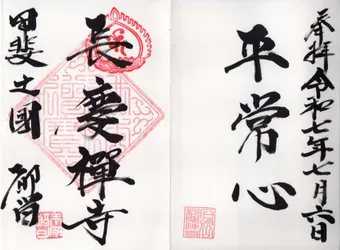 奉拝令和七年七月六日
平常心
長慶禅寺
甲斐之國
都留